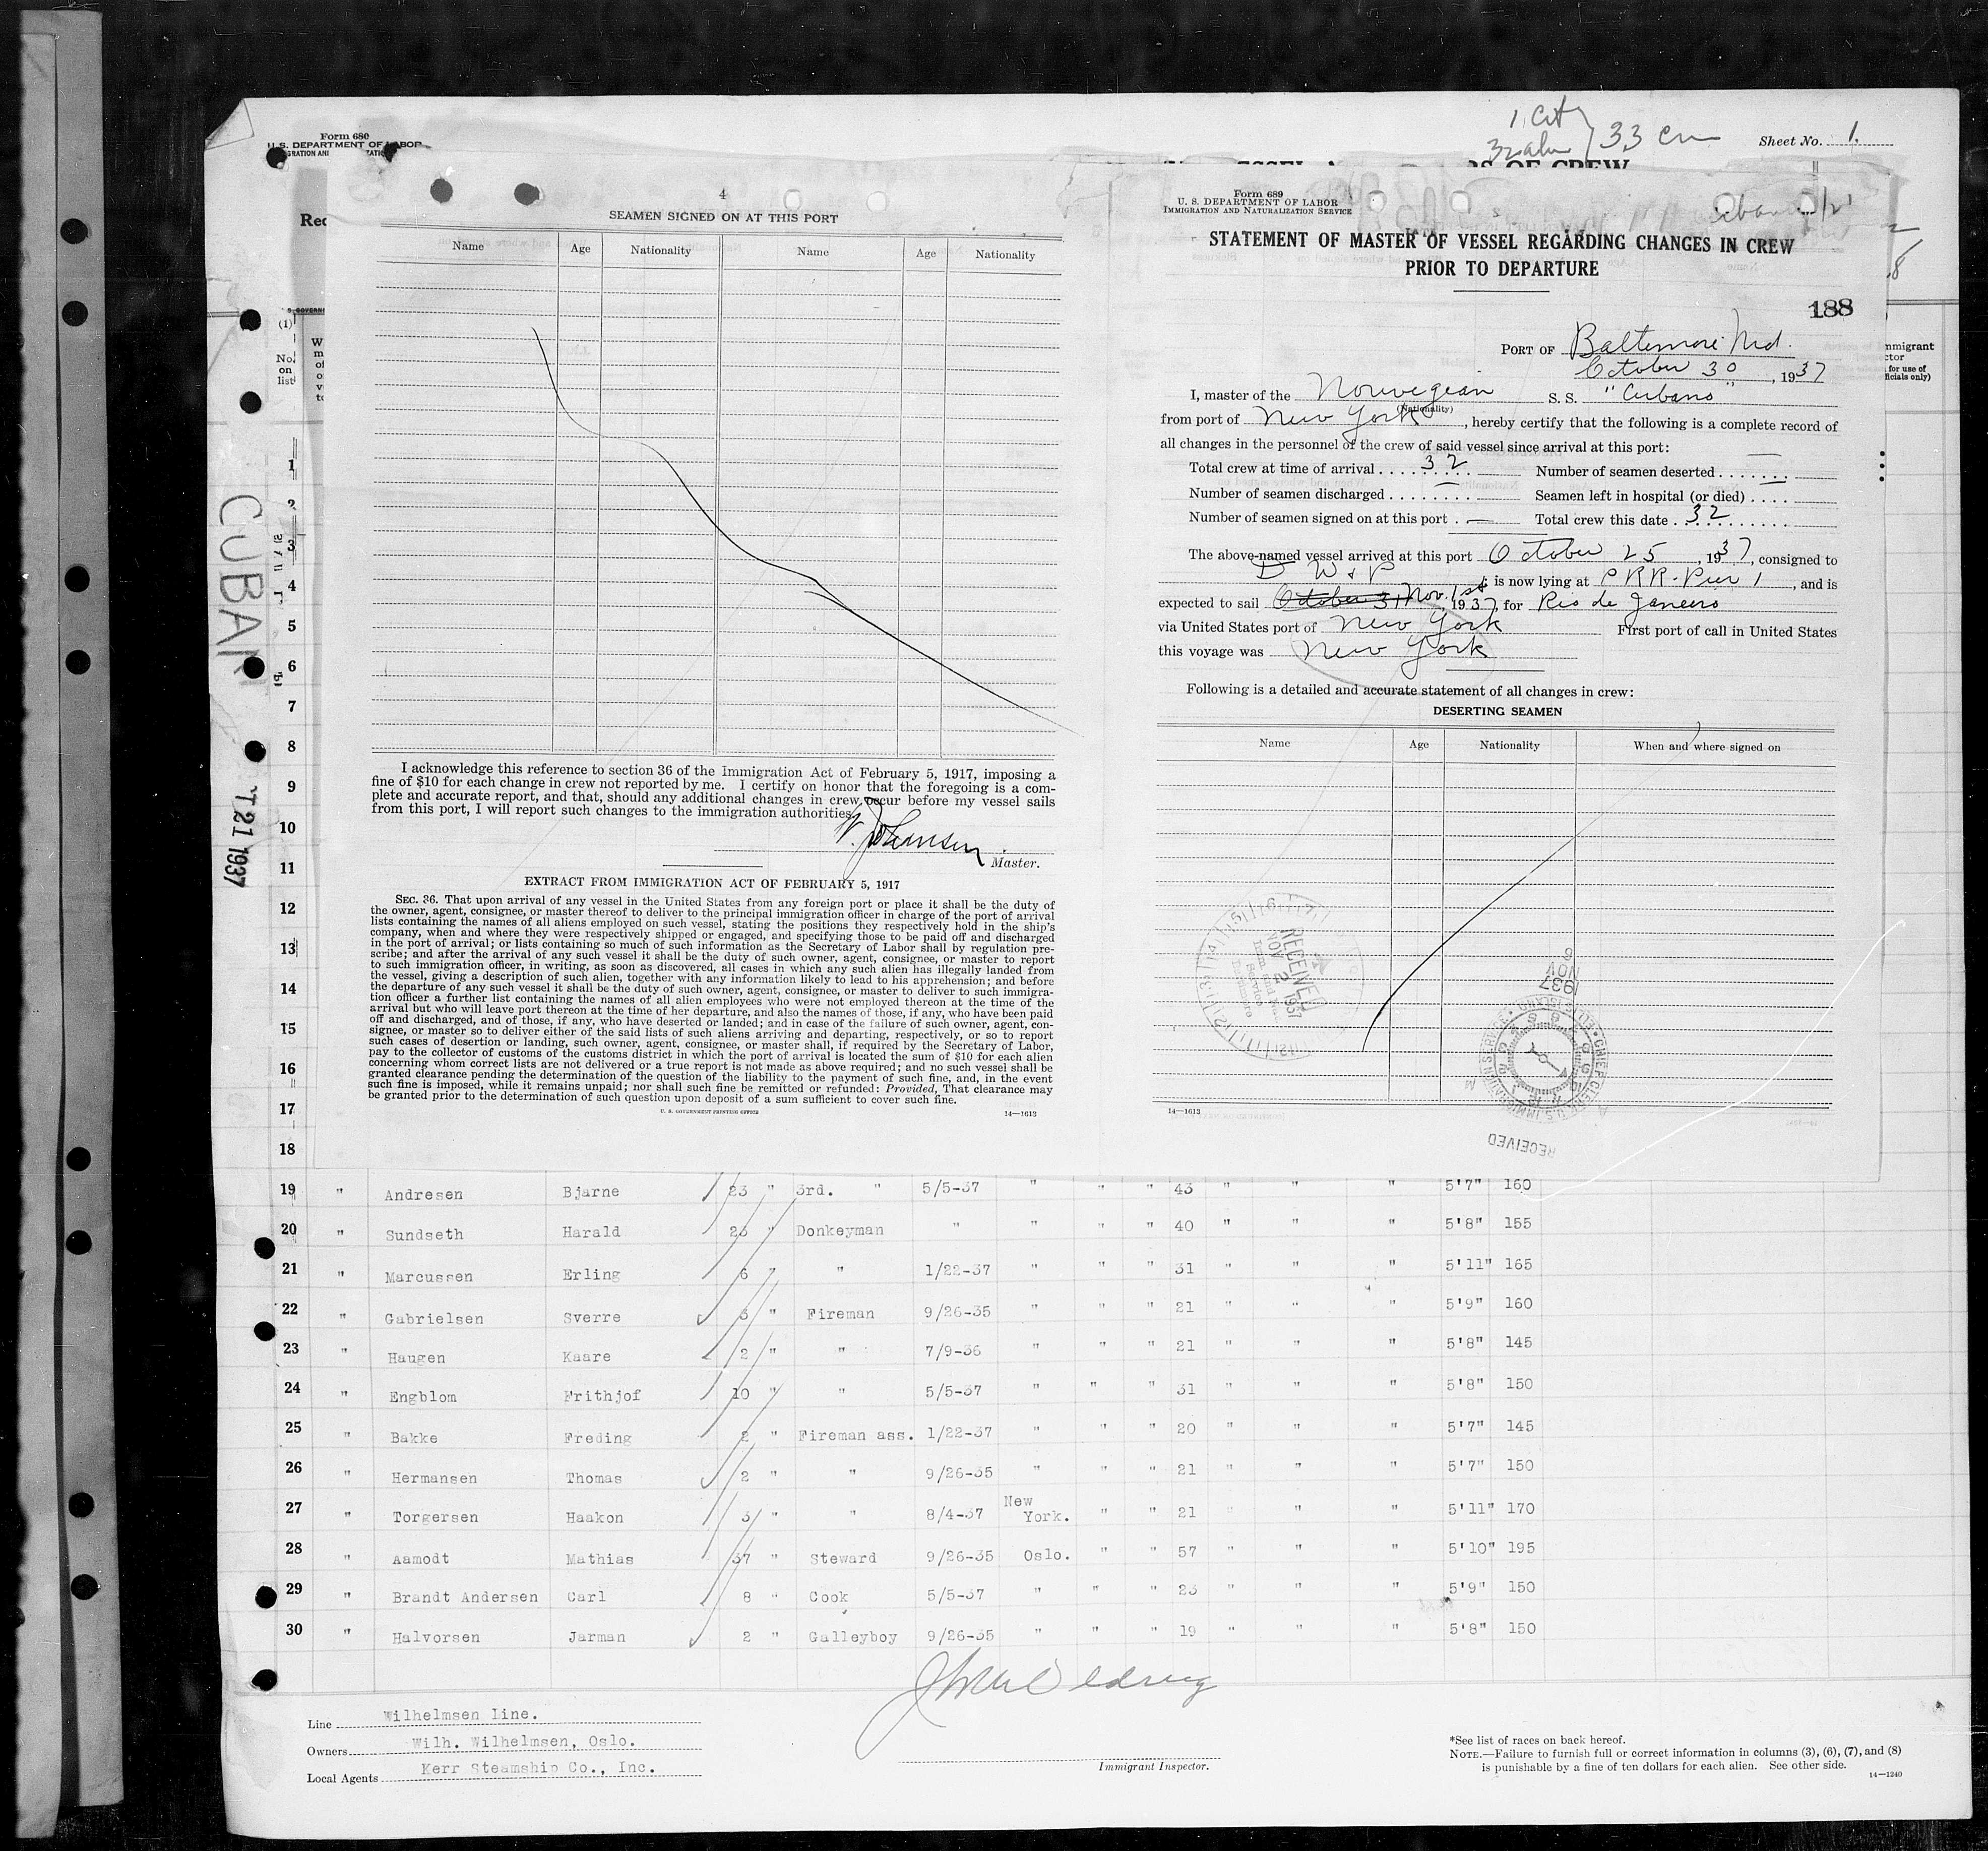 Form 680
U. S. DEPARTMENT OF LABOR
1 Cit
32 alm } 33 cr
Sheet No. 1.
OF CREW
Rec
(1)
No.
on
list
mmigrant
for use of
ficials only)
CUBAN
T 21 1937
4
SEAMEN SIGNED ON AT THIS PORT
Name Age Nationality Name Age Nationality
I acknowledge this reference to section 36 of the Immigration Act of February 5, 1917, imposing a
fine of $10 for each change in crew not reported by me. I certify on honor that the foregoing is a com-
plete and accurate report, and that, should any additional changes in crew occur before my vessel sails
from this port, I will report such changes to the immigration authorities.
W. Johansen
Master.
EXTRACT FROM IMMIGRATION ACT OF FEBRUARY 5, 1917
SEC. 36. That upon arrival of any vessel in the United States from any foreign port or place it shall be the duty of
the owner, agent, consignee, or master thereof to deliver to the principal immigration officer in charge of the port of arrival
lists containing the names of all aliens employed on such vessel, stating the positions they respectively hold in the ship's
company, when and where they were respectively shipped or engaged, and specifying those to be paid off and discharged
in the port of arrival; or lists containing so much of such information as the Secretary of Labor shall by regulation pre-
scribe; and after the arrival of any such vessel it shall be the duty of such owner, agent, consignee, or master to report
to such immigration officer, in writing, as soon as discovered, all cases in which any such alien has illegally landed from
the vessel, giving a description of such alien, together with any information likely to lead to his apprehension; and before
the departure of any such vessel it shall be the duty of such owner, agent, consignee, or master to deliver to such immigra-
tion officer a further list containing the names of all alien employees who were not employed thereon at the time of the
arrival but who will leave port thereon at the time of her departure, and also the names of those, if any, who have been paid
off and discharged, and of those, if any, who have deserted or landed; and in case of the failure of such owner, agent, con-
signee, or master so to deliver either of the said lists of such aliens arriving and departing, respectively, or so to report
such cases of desertion or landing, such owner, agent, consignee, or master shall, if required by the Secretary of Labor,
pay to the collector of customs of the customs district in which the port of arrival is located the sum of $10 for each alien
concerning whom correct lists are not delivered or a true report is not made as above required; and no such vessel shall be
granted clearance pending the determination of the question of the liability to the payment of such fine, and, in the event
such fine is imposed, while it remains unpaid; nor shall such fine be remitted or refunded: Provided, That clearance may
be granted prior to the determination of such question upon deposit of a sum sufficient to cover such fine.
U. S. GOVERNMENT PRINTING OFFICE 14—1613
Form 689
U. S. DEPARTMENT OF LABOR
IMMIGRATION AND NATURALIZATION SERVICE
STATEMENT OF MASTER OF VESSEL REGARDING CHANGES IN CREW
PRIOR TO DEPARTURE
188
PORT OF Baltimore Md.
October 30, 1937
I, master of the Norwegian S. S. "Cubano"
(Nationality)
from port of New York, hereby certify that the following is a complete record of
all changes in the personnel of the crew of said vessel since arrival at this port:
Total crew at time of arrival . . . . 32 Number of seamen deserted . . . . . . —
Number of seamen discharged . . . . . . . — Seamen left in hospital (or died) . . . . —
Number of seamen signed on at this port . — Total crew this date . 32
The above-named vessel arrived at this port October 25, 1937, consigned to
D W & P is now lying at P RR. Pier 1, and is
expected to sail October 31 Nov. 1st, 1937, for Rio de Janeiro
via United States port of New York First port of call in United States
this voyage was New York
Following is a detailed and accurate statement of all changes in crew:
DESERTING SEAMEN
Name Age Nationality When and where signed on
RECEIVED
NOV 2 1937
1937
NOV
6
CHIEF CLERK U.S. IMMIGRATION SERVICE • ELLIS ISLAND
RECEIVED
14—1613
1
2
3
4
5
6
7
8
9
10
11
12
13
14
15
16
17
18
19 " Andresen Bjarne 23 " 3rd. " 5/5-37 " " " 43 " " " 5'7" 160
20 " Sundseth Harald 23 " Donkeyman " " " " 40 " " " 5'8" 155
21 " Marcussen Erling 6 " " 1/22-37 " " " 31 " " " 5'11" 165
22 " Gabrielsen Sverre 3 " Fireman 9/26-35 " " " 21 " " " 5'9" 160
23 " Haugen Kaare 2 " " 7/9-36 " " " 21 " " " 5'8" 145
24 " Engblom Frithjof 10 " " 5/5-37 " " " 31 " " " 5'8" 150
25 " Bakke Freding 2 " Fireman ass. 1/22-37 " " " 20 " " " 5'7" 145
26 " Hermansen Thomas 2 " " 9/26-35 " " " 21 " " " 5'7" 150
27 " Torgersen Haakon 3 " " 8/4-37 New York. " " 21 " " " 5'11" 170
28 " Aamodt Mathias 37 " Steward 9/26-35 Oslo. " " 57 " " " 5'10" 195
29 " Brandt Andersen Carl 8 " Cook 5/5-37 " " " 23 " " " 5'9" 150
30 " Halvorsen Jarman 2 " Galleyboy 9/26-35 " " " 19 " " " 5'8" 150
Line Wilhelmsen Line.
Owners Wilh. Wilhelmsen, Oslo.
Local Agents Kerr Steamship Co., Inc.
Immigrant Inspector.
*See list of races on back hereof.
NOTE.—Failure to furnish full or correct information in columns (3), (6), (7), and (8)
is punishable by a fine of ten dollars for each alien. See other side.
14—1240